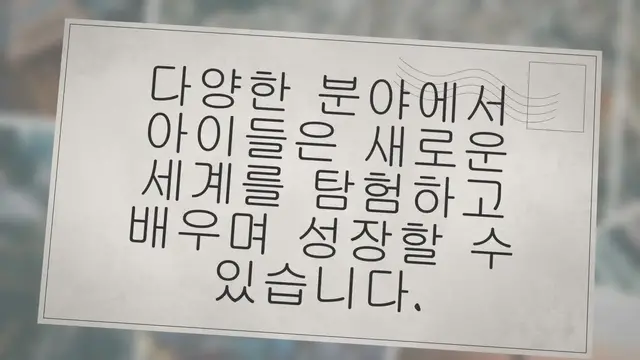 다양한 분야에서
아이들은 새로운
세계를 탐험하고
배우며 성장할 수
있습니다.